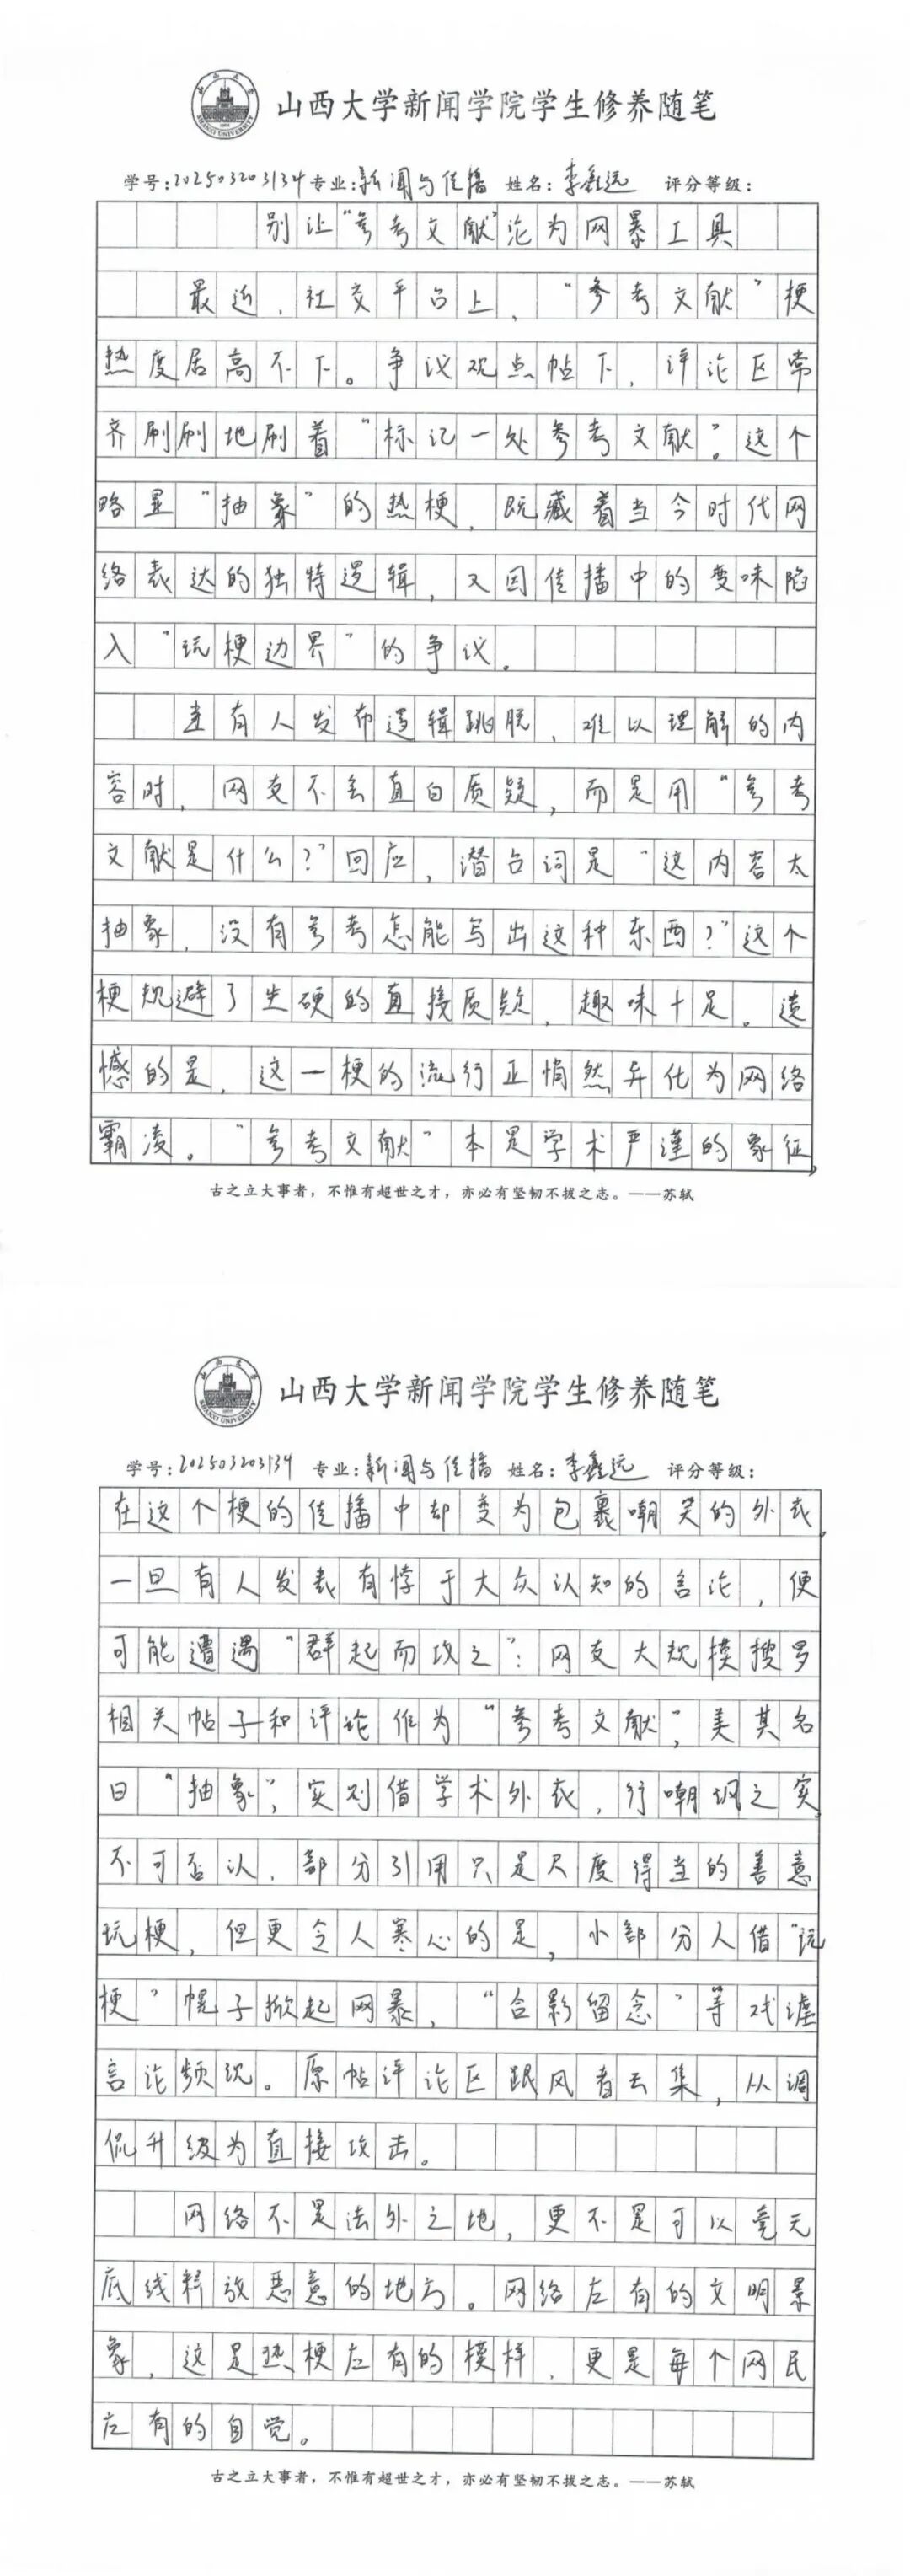 山西大学新闻学院学生修养随笔
学号:202503203134 专业:新闻与传播 姓名:李鑫远 评分等级:
别让“参考文献”沦为网暴工具
最近，社交平台上，“参考文献”梗
热度居高不下。争议观点帖下，评论区常
齐刷刷地刷着“标记一处参考文献”。这个
略显“抽象”的热梗，既藏着当今时代网
络表达的独特逻辑，又因传播中的变味陷
入“玩梗边界”的争议。
当有人发布逻辑跳脱，难以理解的内
容时，网友不会直白质疑，而是用“参考
文献是什么？”回应，潜台词是“这内容太
抽象，没有参考怎能写出这种东西？”这个
梗规避了生硬的直接质疑，趣味十足。遗
憾的是，这一梗的流行正悄然异化为网络
霸凌。“参考文献”本是学术严谨的象征，
古之立大事者，不惟有超世之才，亦必有坚韧不拔之志。——苏轼
山西大学新闻学院学生修养随笔
学号:202503203134 专业:新闻与传播 姓名:李鑫远 评分等级:
在这个梗的传播中却变为包裹嘲笑的外衣，
一旦有人发表有悖于大众认知的言论，便
可能遭遇“群起而攻之”：网友大规模搜罗
相关帖子和评论作为“参考文献”，美其名
曰“抽象”，实则借学术外衣，行嘲讽之实。
不可否认，部分引用只是尺度得当的善意
玩梗，但更令人寒心的是，小部分人借“玩
梗”幌子掀起网暴，“合影留念”等戏谑
言论频现。原帖评论区跟风者云集，从调
侃升级为直接攻击。
网络不是法外之地，更不是可以毫无
底线释放恶意的地方。网络应有的文明景
象，这是热梗应有的模样，更是每个网民
应有的自觉。
古之立大事者，不惟有超世之才，亦必有坚韧不拔之志。——苏轼